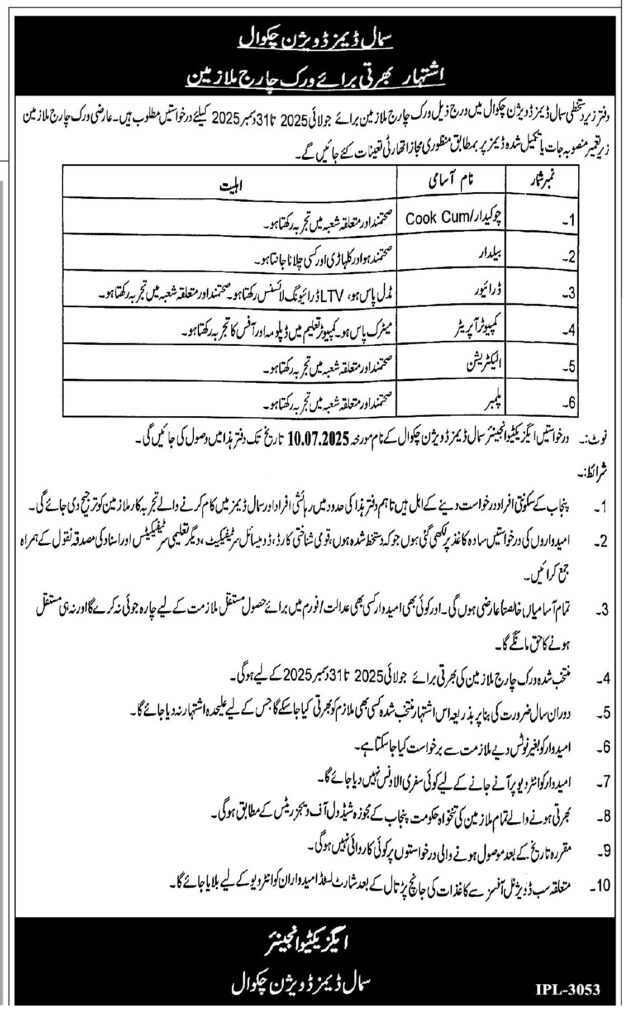 سمال ڈیمز ڈویژن چکوال
اشتہار بھرتی برائے ورک چارج ملازمین
دفتر زیر دستخطی سمال ڈیمز ڈویژن چکوال میں درج ذیل ورک چارج ملازمین برائے جولائی 2025 تا 31 دسمبر 2025 کیلئے درخواستیں مطلوب ہیں۔ عارضی ورک چارج ملازمین
زیر تعمیر منصوبہ جات یا تکمیل شدہ ڈیمز پر بمطابق منظوری مجاز اتھارٹی تعینات کئے جائیں گے۔
نمبر شمار نام آسامی اہلیت
1۔ چوکیدار/Cook Cum صحتمند اور متعلقہ شعبہ میں تجربہ رکھتا ہو۔
2۔ بیلدار صحتمند ہو اور کلہاڑی اور کسی چلانا جانتا ہو۔
3۔ ڈرائیور مڈل پاس ہو، LTV ڈرائیونگ لائسنس رکھتا ہو۔ صحتمند اور متعلقہ شعبہ میں تجربہ رکھتا ہو۔
4۔ کمپیوٹر آپریٹر میٹرک پاس ہو۔ کمپیوٹر تعلیم میں ڈپلومہ اور آفس کا تجربہ رکھتا ہو۔
5۔ الیکٹریشن صحتمند اور متعلقہ شعبہ میں تجربہ رکھتا ہو۔
6۔ پلمبر صحتمند اور متعلقہ شعبہ میں تجربہ رکھتا ہو۔
نوٹ:۔ درخواستیں ایگزیکٹو انجینئر سمال ڈیمز ڈویژن چکوال کے نام مورخہ 10.07.2025 تاریخ تک دفتر ہذا میں وصول کی جائیں گی۔
شرائط:۔
1۔ پنجاب کے سکونتی افراد درخواست دینے کے اہل ہیں تاہم دفتر ہذا کی حدود میں رہائشی افراد اور سمال ڈیمز میں کام کرنے والے تجربہ کار ملازمین کو ترجیح دی جائے گی۔
2۔ امیدواروں کی درخواستیں سادہ کاغذ پر لکھی گئی ہوں جو کہ دستخط شدہ ہوں، قومی شناختی کارڈ، ڈومیسائل سرٹیفکیٹ، دیگر تعلیمی سرٹیفکیٹس اور اسناد کی مصدقہ نقول کے ہمراہ
جمع کرائیں۔
3۔ تمام آسامیاں، خالصتاً عارضی ہوں گی۔ اور کوئی بھی امیدوار کسی بھی عدالت/فورم میں برائے حصول مستقل ملازمت کے لیے چارہ جوئی نہ کرے گا اور نہ ہی مستقل
ہونے کا حق مانگے گا۔
4۔ منتخب شدہ ورک چارج ملازمین کی بھرتی برائے جولائی 2025 تا 31 دسمبر 2025 کے لیے ہوگی۔
5۔ دوران سال ضرورت کی بنا پر بذریعہ اس اشتہار منتخب شدہ کسی بھی ملازم کو بھرتی کیا جاسکے گا جس کے لیے علیحدہ اشتہار نہ دیا جائے گا۔
6۔ امیدوار کو بغیر نوٹس دیے ملازمت سے برخواست کیا جاسکتا ہے۔
7۔ امیدوار کو انٹرویو پر آنے جانے کے لیے کوئی سفری الاؤنس نہیں دیا جائے گا۔
8۔ بھرتی ہونے والے تمام ملازمین کی تنخواہ حکومت پنجاب کے مجوزہ شیڈول آف ویجز ریٹس کے مطابق ہوگی۔
9۔ مقررہ تاریخ کے بعد موصول ہونے والی درخواستوں پر کوئی کاروائی نہیں ہوگی۔
10۔ متعلقہ سب ڈویژنل آفسز سے کاغذات کی جانچ پڑتال کے بعد شارٹ لسٹڈ امیدواران کو انٹرویو کے لیے بلایا جائے گا۔
ایگزیکٹو انجینئر
سمال ڈیمز ڈویژن چکوال
IPL-3053